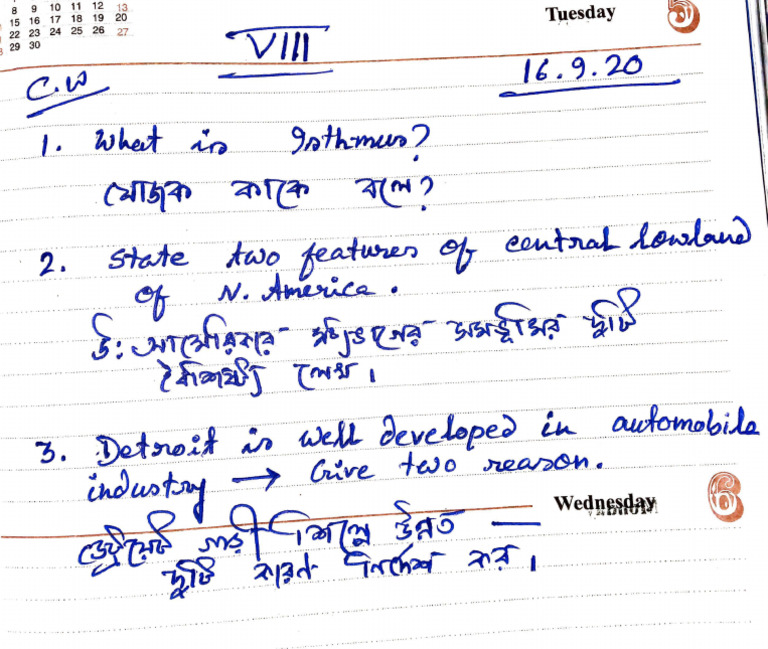 8 9 10 11 12 13
15 16 17 18 19 20
22 23 24 25 26 27
29 30
Tuesday 5
VIII
C.W
16.9.20
1. What is Isthmus?
যোজক কাকে বলে?
2. State two features of central lowland
of N. America.
উ: আমেরিকার মধ্যভাগের সমভূমির দুটি
বৈশিষ্ট্য লেখ।
3. Detroit is well developed in automobile
industry → Give two reason.
Wednesday 6
ডেট্রয়েট গাড়ী শিল্পে উন্নত —
দুটি কারণ নির্দেশ কর।